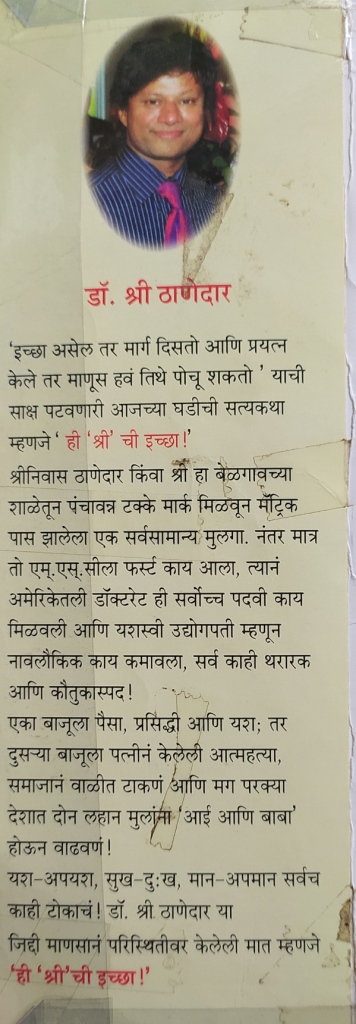 डॉ. श्री ठाणेदार
‘इच्छा असेल तर मार्ग दिसतो आणि प्रयत्न
केले तर माणूस हवं तिथे पोचू शकतो ’ याची
साक्ष पटवणारी आजच्या घडीची सत्यकथा
म्हणजे ‘ ही ‘श्री’ ची इच्छा!’
श्रीनिवास ठाणेदार किंवा श्री हा बेळगावच्या
शाळेतून पंचावन्न टक्के मार्क मिळवून मॅट्रिक
पास झालेला एक सर्वसामान्य मुलगा. नंतर मात्र
तो एम्.एस्.सीला फर्स्ट काय आला, त्यानं
अमेरिकेतली डॉक्टरेट ही सर्वोच्च पदवी काय
मिळवली आणि यशस्वी उद्योगपती म्हणून
नावलौकिक काय कमावला, सर्व काही थरारक
आणि कौतुकास्पद!
एका बाजूला पैसा, प्रसिद्धी आणि यश; तर
दुसऱ्या बाजूला पत्नीनं केलेली आत्महत्या,
समाजानं वाळीत टाकणं आणि मग परक्या
देशात दोन लहान मुलांना ‘आई आणि बाबा’
होऊन वाढवणं!
यश-अपयश, सुख-दुःख, मान-अपमान सर्वच
काही टोकाचं! डॉ. श्री ठाणेदार या
जिद्दी माणसानं परिस्थितीवर केलेली मात म्हणजे
‘ही ‘श्री’ची इच्छा!’